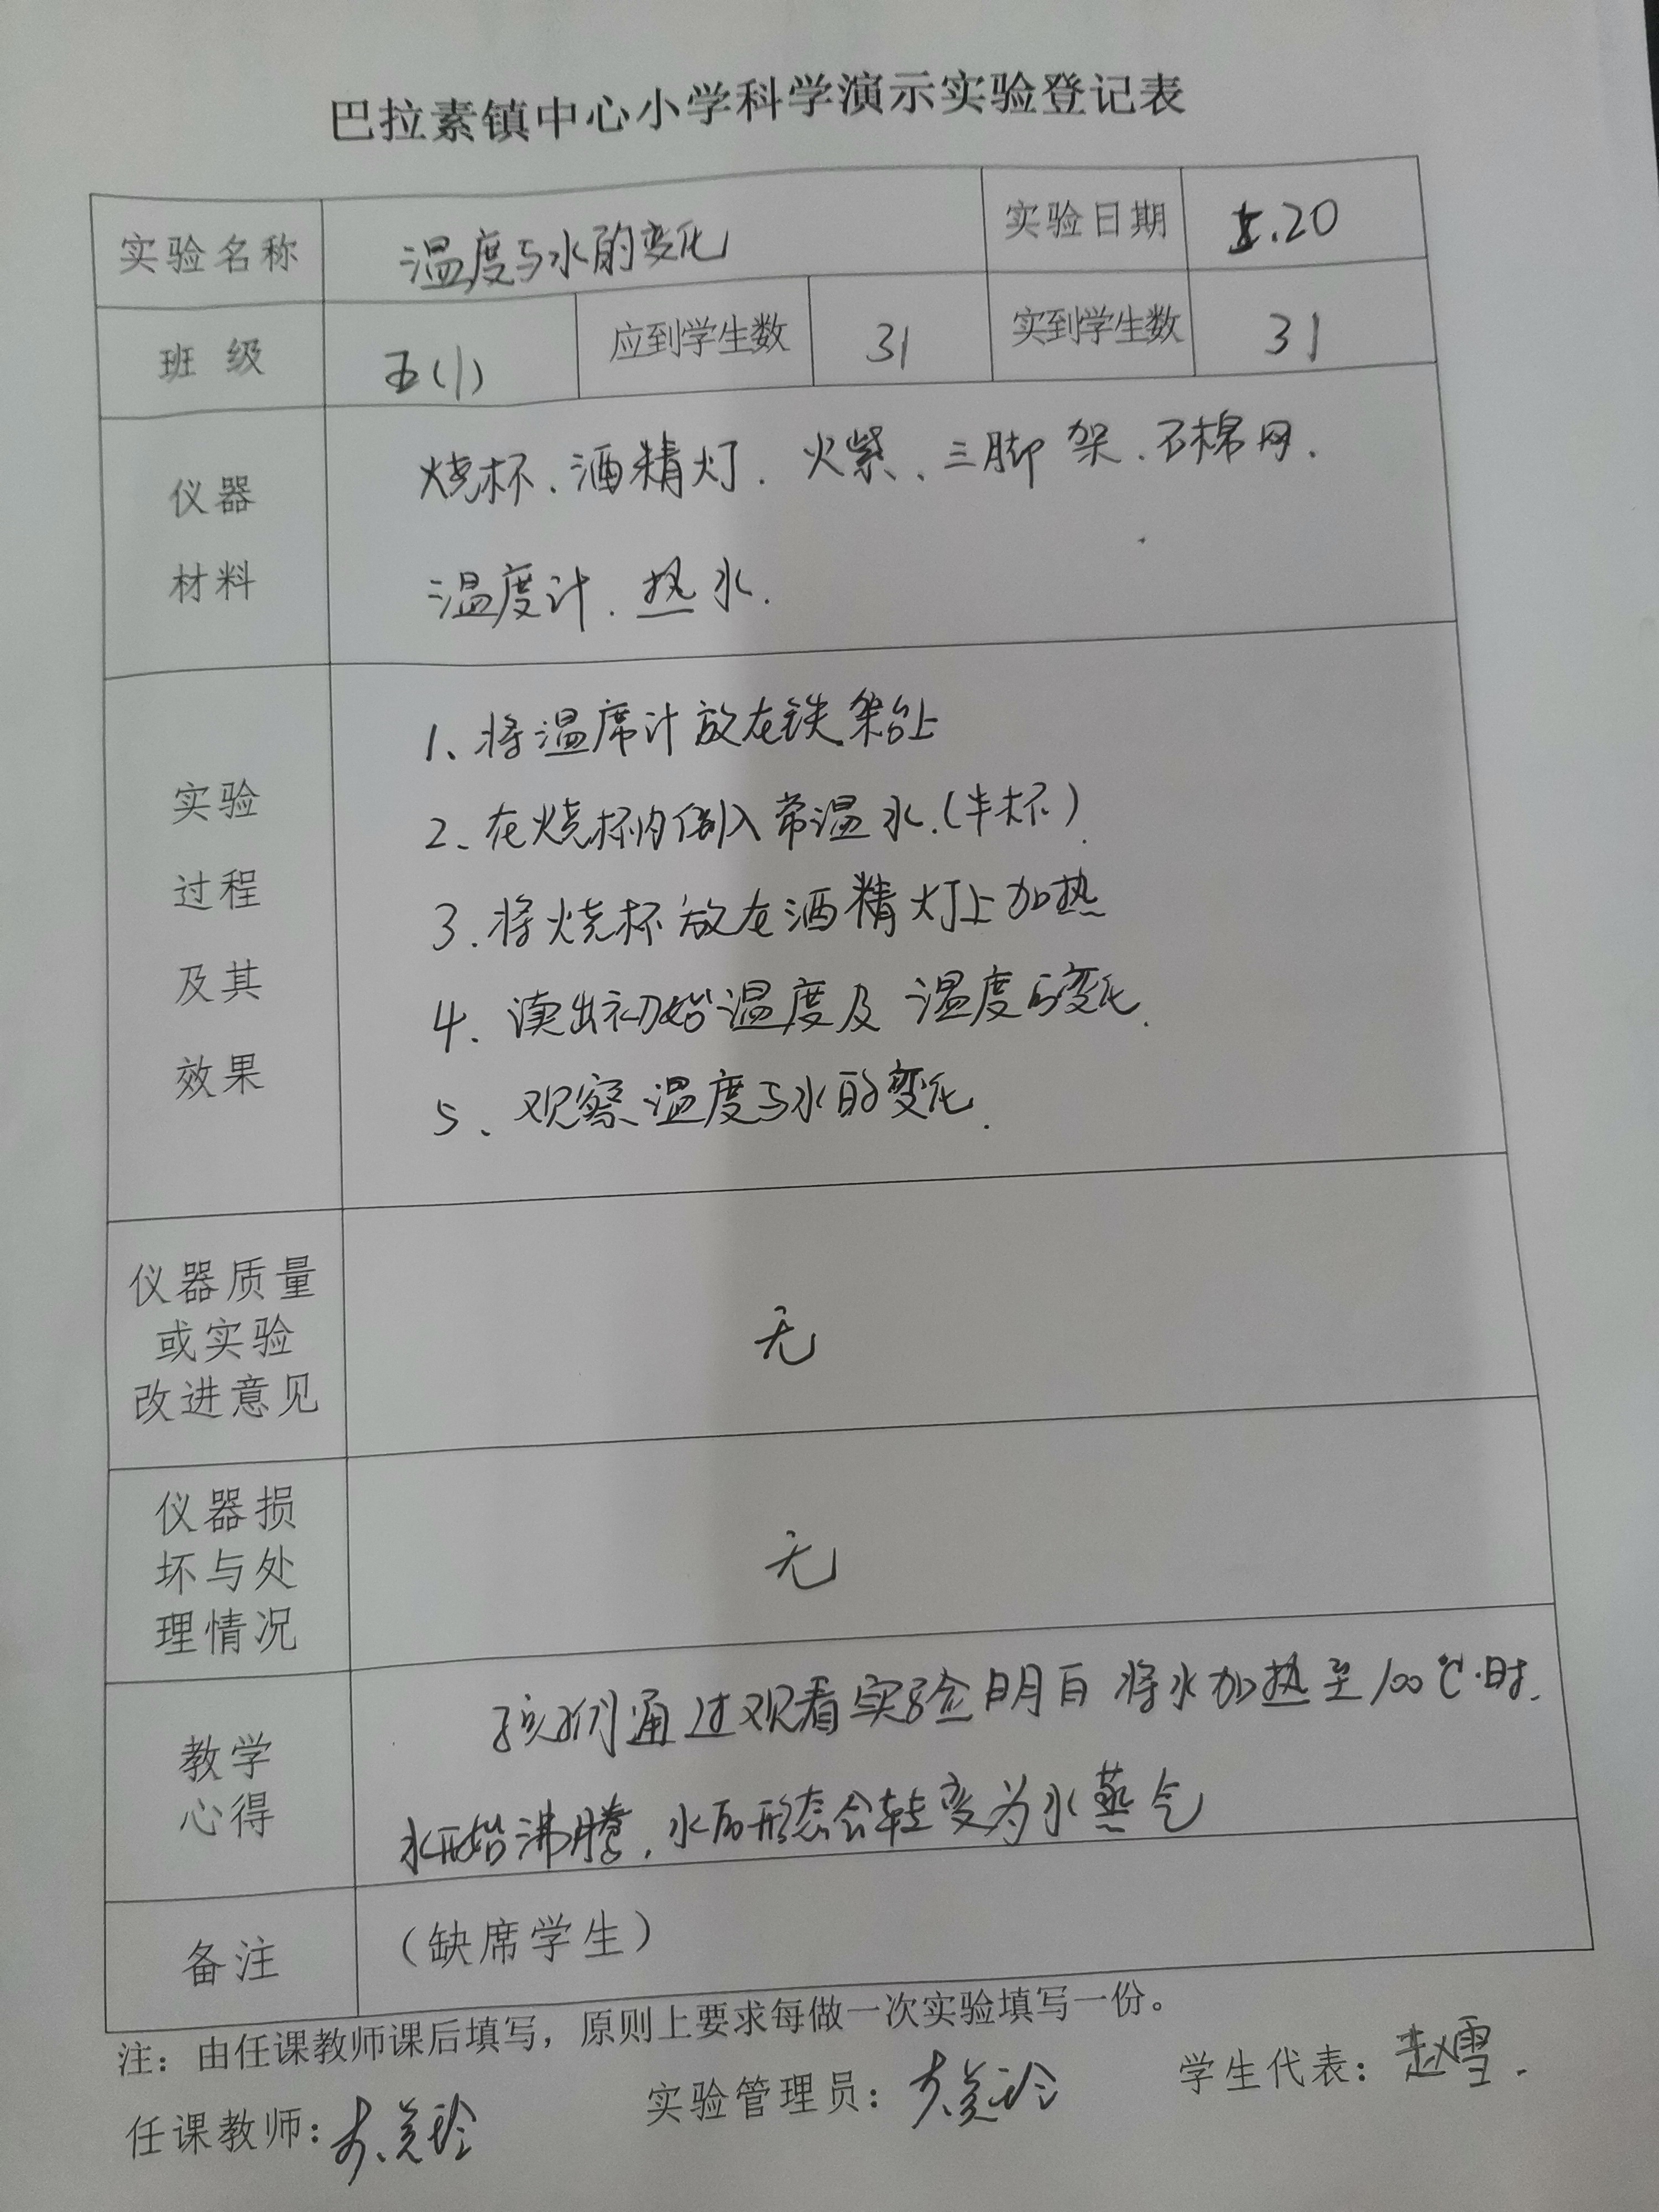 巴拉素镇中心小学科学演示实验登记表
实验名称 温度与水的变化 实验日期 5.20
班 级 五(1) 应到学生数 31 实到学生数 31
仪器
材料
烧杯、酒精灯. 火柴、三脚架、石棉网.
温度计. 热水.
实验
过程
及其
效果
1、将温度计放在铁架台上
2、在烧杯内倒入常温水.(半杯).
3.将烧杯放在酒精灯上加热
4.读出初始温度及温度的变化.
5、观察温度与水的变化.
仪器质量
或实验
改进意见
无
仪器损
坏与处
理情况
无
教学
心得
孩子们通过观看实验明白将水加热至100℃时.
水开始沸腾.水的形态会转变为水蒸气
备注 (缺席学生)
注：由任课教师课后填写，原则上要求每做一次实验填写一份。
任课教师: 实验管理员: 学生代表: 赵雪.